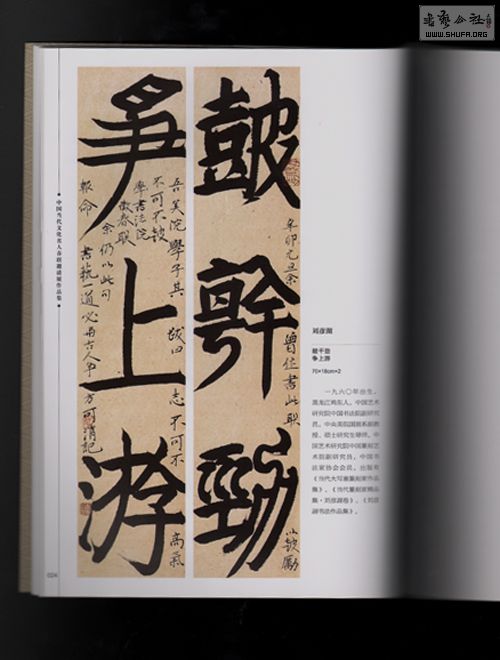 書藝公社
WWW.SHUFA.ORG
中国当代文化名人春联邀请展作品集
鼓幹勁
爭上游
辛卯元旦余
曾住書此联
以鼓勵
吾美院學子其
志不可不
高氣
不可不鼓
學書法院
徵春联
余仍以此句
報命
書藝一道必
方可
消記
刘彦湖
鼓干劲
争上游
70×18cm×2
一九六〇年出生，
黑龙江鸡东人。中国艺术
研究院中国书法院副研究
员，中央美院国画系副教
授、硕士研究生导师，中
国艺术研究院中国篆刻艺
术院副研究员，中国书
法家协会会员。出版有
《当代大写意篆刻家作品
集》、《当代篆刻家精品
集·刘彦湖卷》、《刘彦
湖书法作品集》。
024